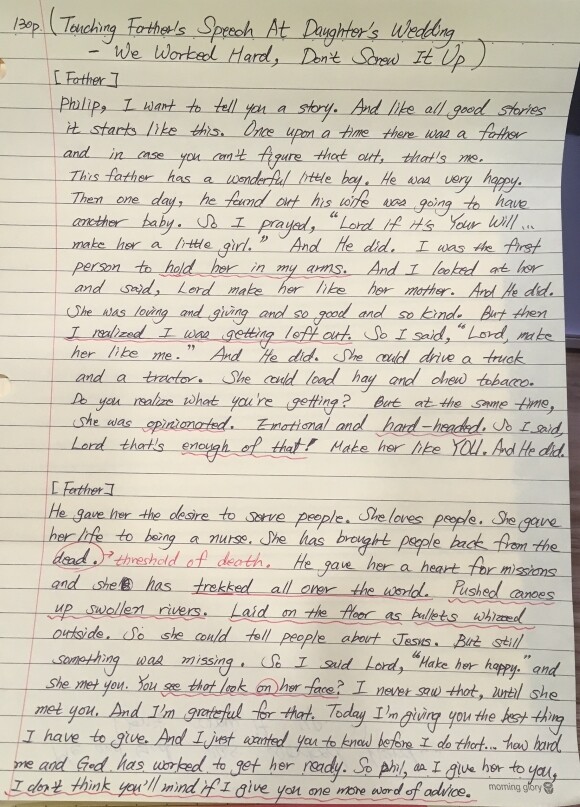 130p. (Touching Father's Speech At Daughter's Wedding
- We Worked Hard, Don't Screw It Up)
[Father]
Philip, I want to tell you a story. And like all good stories
it starts like this. Once upon a time there was a father
and in case you can't figure that out, that's me.
This father has a wonderful little boy. He was very happy.
Then one day, he found out his wife was going to have
another baby. So I prayed, "Lord If It's Your Will...
make her a little girl." And He did. I was the first
person to hold her in my arms. And I looked at her
and said, Lord make her like her mother. And He did.
She was loving and giving and so good and so kind. But then
I realized I was getting left out. So I said, "Lord, make
her like me." And He did. She could drive a truck
and a tractor. She could load hay and chew tobacco.
Do you realize what you're getting? But at the same time,
she was opinionated. Emotional and hard-headed. So I said
Lord that's enough of that! Make her like YOU. And He did.
[Father]
He gave her the desire to serve people. She loves people. She gave
her life to being a nurse. She has brought people back from the
dead. → threshold of death. He gave her a heart for missions
and she has trekked all over the world. Pushed canoes
up swollen rivers. Laid on the floor as bullets whizzed
outside. So she could tell people about Jesus. But still
something was missing. So I said Lord, "Make her happy." and
she met you. You see that look on her face? I never saw that, until she
met you. And I'm grateful for that. Today I'm giving you the best thing
I have to give. And I just wanted you to know before I do that... how hard
me and God has worked to get her ready. So Phil, as I give her to you,
I don't think you'll mind if I give you one more word of advice.
morning glory